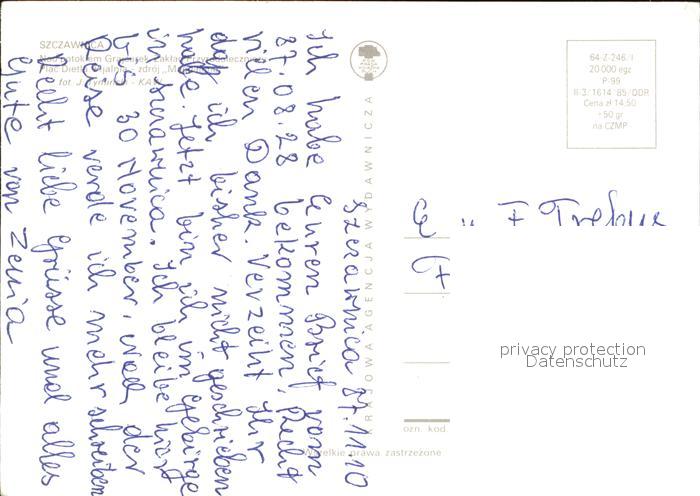 SZCZAWNICA
fot. J. Tymiński - KAW
KRAJOWA AGENCJA WYDAWNICZA
64-Z-246/I
20.000 egz
P-99
II-3/1614/85/DDR
Cena zł 14,50
+ 50 gr
na CZMP
Szczawnica 87.11.10
Ich habe Euren Brief vom
87.08.28 bekommen, Recht
vielen Dank. Verzeiht Ihr
daß ich bisher nicht geschrieben
habe. Jetzt bin ich im Gebirge
in Szczawnica. Ich bleibe hier
bis 30 November. Nach der
Reise werde ich mehr schreiben
Recht liebe Grüsse und alles
Gute von Zenia
privacy protection
Datenschutz
ozn. kod.
Wszelkie prawa zastrzeżone